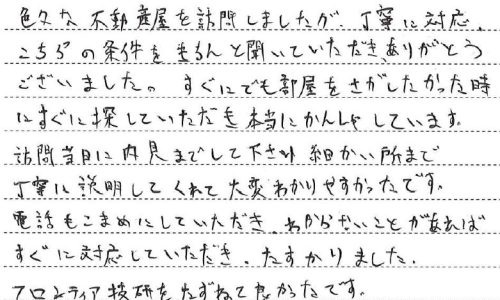 色々な不動産屋を訪問しましたが、丁寧に対応、
こちらの条件をきちんと聞いていただき、ありがとう
ございました。すぐにでも部屋をさがしたかった時
にすぐに探していただき本当にかんしゃしています。
訪問当日に内見までして下さり細かい所まで
丁寧に説明してくれて大変わかりやすかったです。
電話もこまめにしていただき、わからないことがあれば
すぐに対応していただき、たすかりました。
フロンティア技研をたずねて良かったです。